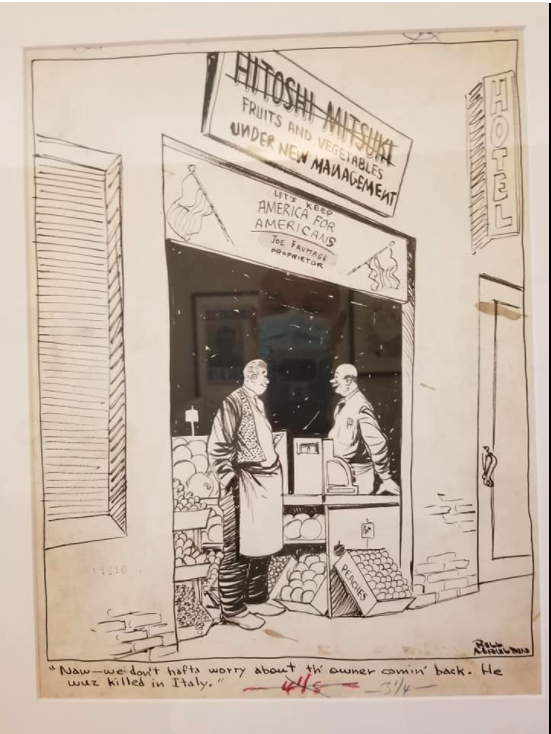 HITOSHI MITSUKI
FRUITS AND VEGETABLES
UNDER NEW MANAGEMENT
HOTEL
LET'S KEEP
AMERICA FOR
AMERICANS
JOE FRUMAGE
PROPRIETOR
PEACHES
BILL
MAULDIN
"Naw—we don't hafta worry about th' owner comin' back. He
wuz killed in Italy."
3 1/4